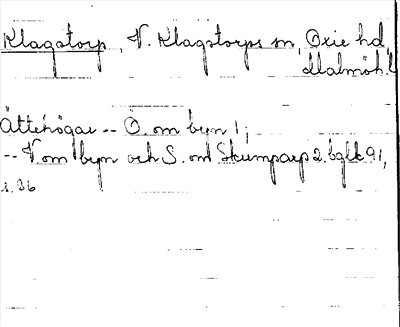 Klagstorp, V. Klagstorps sn, Oxie hd,
Malmöh. l.
Ättehögar -- Ö. om byn 1;
-- V om byn och S. om Skumparp 2. bglk 91,
s. 36